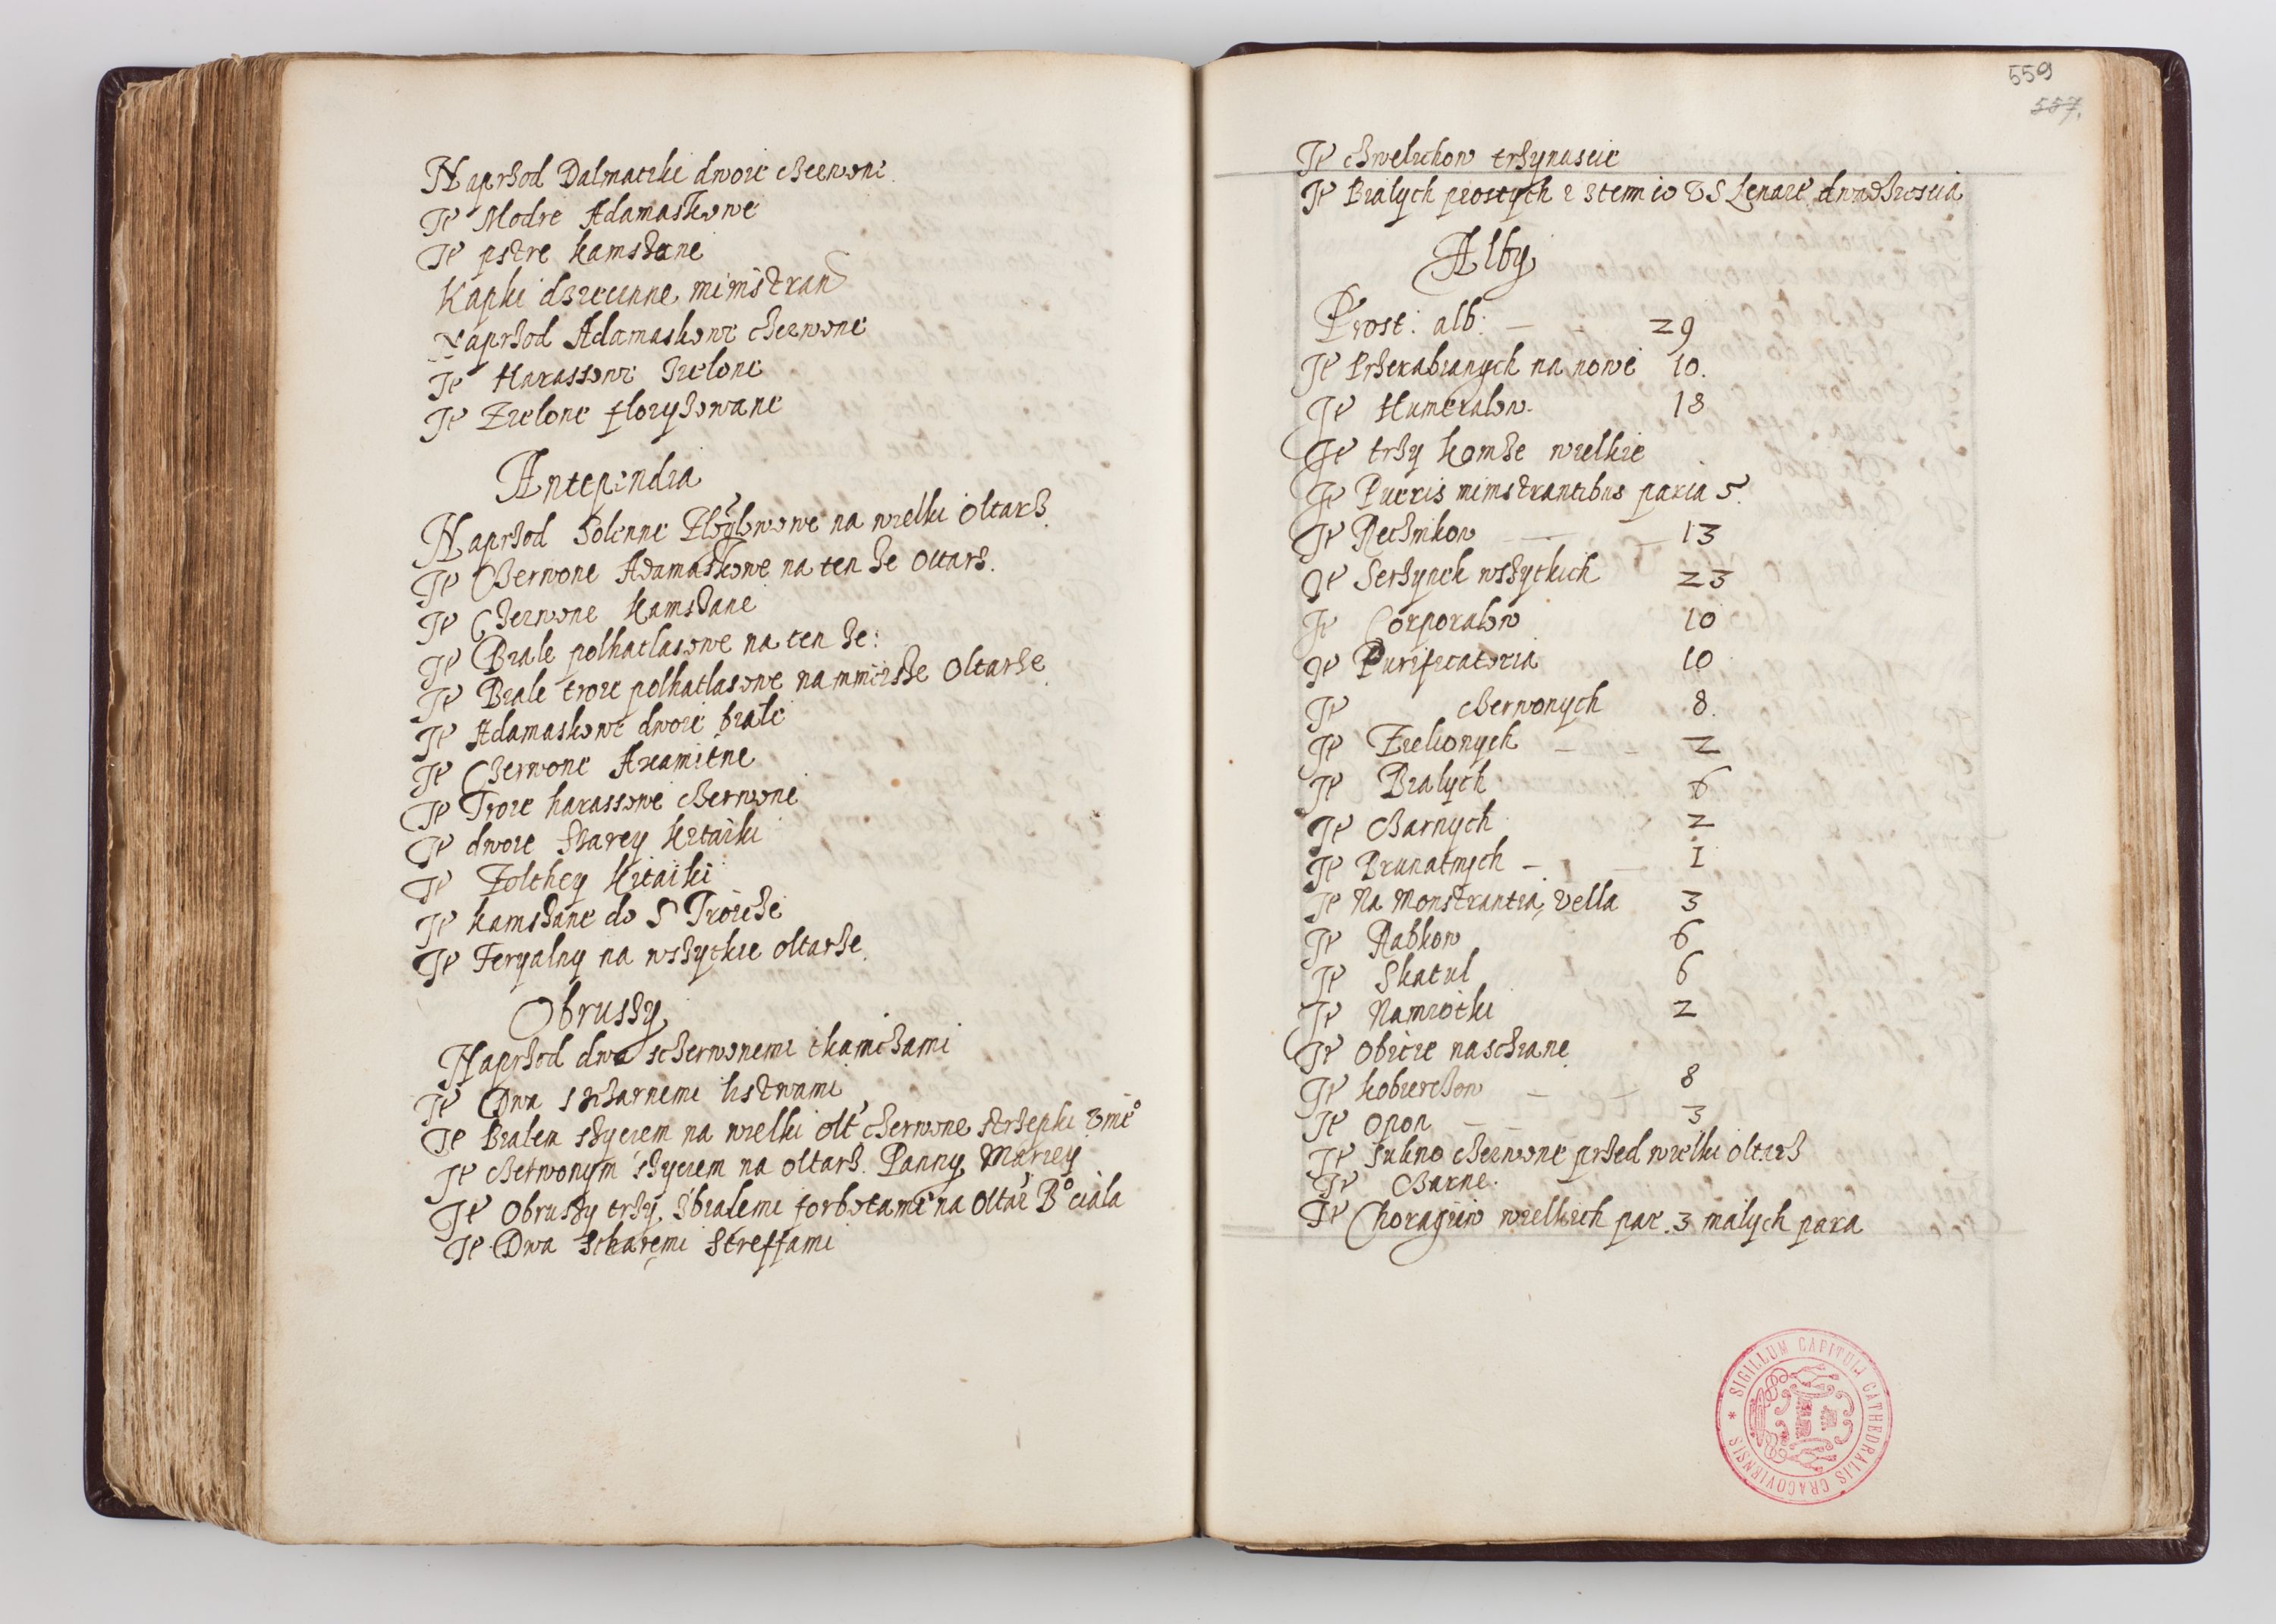 Naprzod Dalmatiki dwoie czerwone.
Ite Modre Adamaskowe
Ite pstre kamszane
Kapki dziecinne ministran
Naprzod Adamaskowe czerwone
Ite Harassowe zielone
Ite Zielone floryzowane
Antependia
Naprzod Solenne na wielki oltarz.
Ite Czerwone Adamaskowe na ten ze oltarz.
Ite Czerwone kamszane
Ite Biale polhatlasowe na ten ze:
Ite Biale troie polhatlasowe na mnieisze oltarze.
Ite Adamaskowe dwoie biale
Ite Czerwone Axamitne
Ite Troie harassowe czerwone
Ite dwoie szarey kitaiki
Ite Zolthey kitaiki
Ite kamszane do S Troicze
Ite Feryalny na wszytkie oltarze.
Obrussy
Naprzod dwa sczerwonemi tkaniczami
Ite Dwa sczarnemi listwami
Ite Bialem szyciem na wielki olt czerwone strzepki
Ite czerwonym szyciem na oltarz. Panny Mariey
Ite Obrussy trzy, sbialemi forbotami na oltar B° ciala
Ite Dwa streffami
559
557.
Ite chwelichow trzynascie
Ite Bialych prostych Lenare dwadziescia
Alby
Prost: alb: — 29
Ite Przerabianych na nowe 10.
Ite Humeralow. 18
Ite trzy komze wielkie
Ite Pueris ministrantibus paria 5.
Ite Recznikow — — 13
Ite Serzynek wszytkich 23
Ite Corporalow 10
Ite Purificatoria 10
Ite czerwonych 8.
Ite Zielionych — — 2
Ite Bialych 6
Ite Czarnych 2
Ite Brunatnych — — 1
Ite Na Monstrantia, vella 3
Ite Rabkow 6
Ite Skatul 6
Ite Namiotki 2
Ite Obicie na schiane
Ite kobierczow — — 8
Ite Opon — — 3
Ite Sukno czerwone przed wielki oltarz
Ite Czarne.
Ite Choragiew wielkich par. 3 malych para
* SIGILLUM CAPITULI CATHEDRALIS CRACOVIENSIS